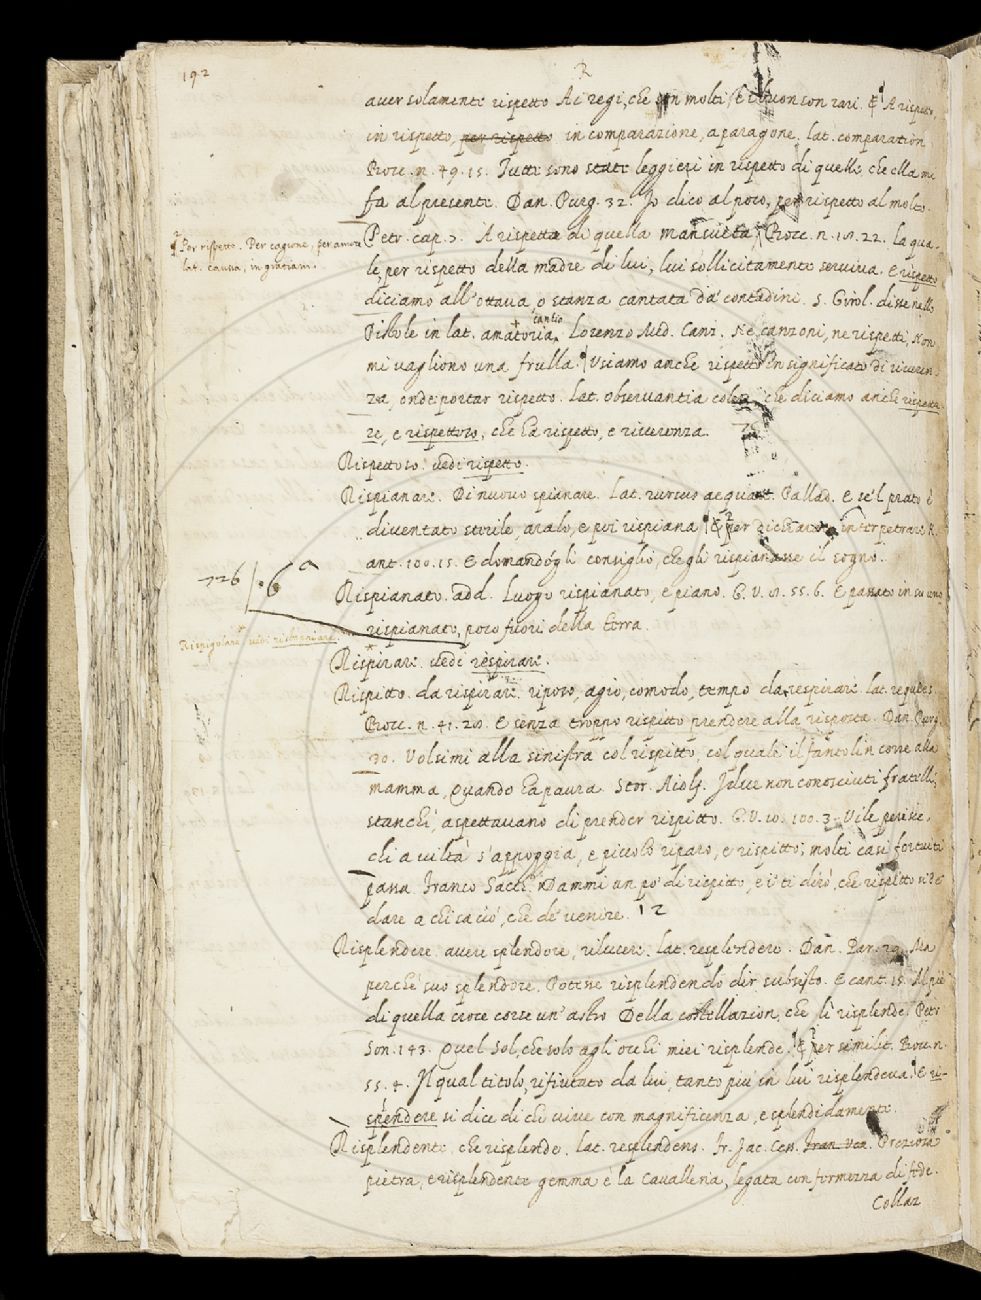 192
R
aver solamente rispetto Ai regi, che son molti, e i buon son rari. & A rispetto,
in rispetto, per rispetto in comparazione, a paragone. lat. comparatione
Bocc. n. 49. 15. Tutti sono stati leggieri in rispetto di quello, che ella mi
fa al presente. Dan. Purg. 32. Io dico al poco, per rispetto al molto.
& Per rispetto. Per cagione, per amore
lat. causa, in gratiam.
Petr. cap. 7. A rispetto di quella mansueta, Bocc. n. 18. 22. la qua-
le, per rispetto della madre di lui, lui sollicitamente serviva. E rispetto
diciamo all'ottava, o stanza cantata da' contadini. S. Girol. disse nelle
Pistole in lat. amatoria cantio. Lorenzo Med. Canz. Ne canzoni, ne rispetti, Non
mi vagliono una frulla. Usiamo anche rispetto in significato di riveren-
za, onde portar rispetto. Lat. observantia che diciamo anche rispetta-
re, e rispettoso, che ha rispetto, e riverenza.
Rispettoso. vedi rispetto.
Rispianare. Di nuovo spianare. Lat. rursus aequare. Pallad. E se'l prato è
diventato sterile, aralo, e poi rispiana & per dichiarare, interpetrare N.
ant. 100. 15. E domandógli consiglio, che gli rispianasse il sogno.
726 | . 6 a
Rispianato. add. Luogo rispianato, e piano. G. V. 8. 55. 6. E passato in su uno
rispianato, poco fuori della terra.
Rispigolare vedi ristoppiare.
Rispirare. vedi respirare.
Rispitto. da rispirare. riposo, agio, comodo, tempo da respirare lat. requies.
Bocc. n. 41. 20. E senza troppo rispitto prendere alla risposta. Dan. Purg.
30. Volsimi alla sinistra col rispitto, col quale il fantolin corre alla
mamma, Quando ha paura. Stor. Aiolf. Idue non conosciuti fratelli,
stanchi, aspettavano di prender rispitto. G. V. 10. 100. 3. Vile perisce,
chi a viltà s'appoggia, e piccolo riparo, e rispitto, molti casi fortuiti
passa. Franco Sacch. Dammi un po' di rispitto, e i' ti dirò, che rispitto si de'
dare a chi sa ciò, che de' venire. 12
Risplendere. avere splendore, rilucere. lat. resplendere. Dan. Par. 29. Ma
perchè suo splendore, Potesse risplendendo dir subsisto. E cant. 15. Al piè
di quella croce corse un'astro Della costellazion, che lì risplende. Petr.
Son. 143. Quel Sol, che solo agli occhi miei risplende. & per similit. Bocc. n.
55. 4. Il qual titolo, rifiutato da lui, tanto più in lui risplendeva. E ri-
splendere si dice di chi vive con magnificenza, e splendidamente.
Risplendente. che risplende. Lat. resplendens. Fr. Jac. Ces. Preziosa
pietra, e risplendente gemma è la Cavalleria, legata con fermezza di fede.
Collaz